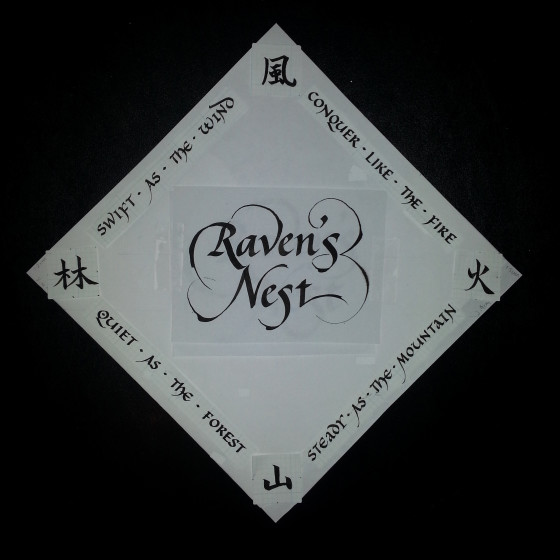 風
SWIFT · AS · THE · WIND
CONQUER · LIKE · THE · FIRE
林
Raven's
Nest
火
QUIET · AS · THE · FOREST
STEADY · AS · THE · MOUNTAIN
山